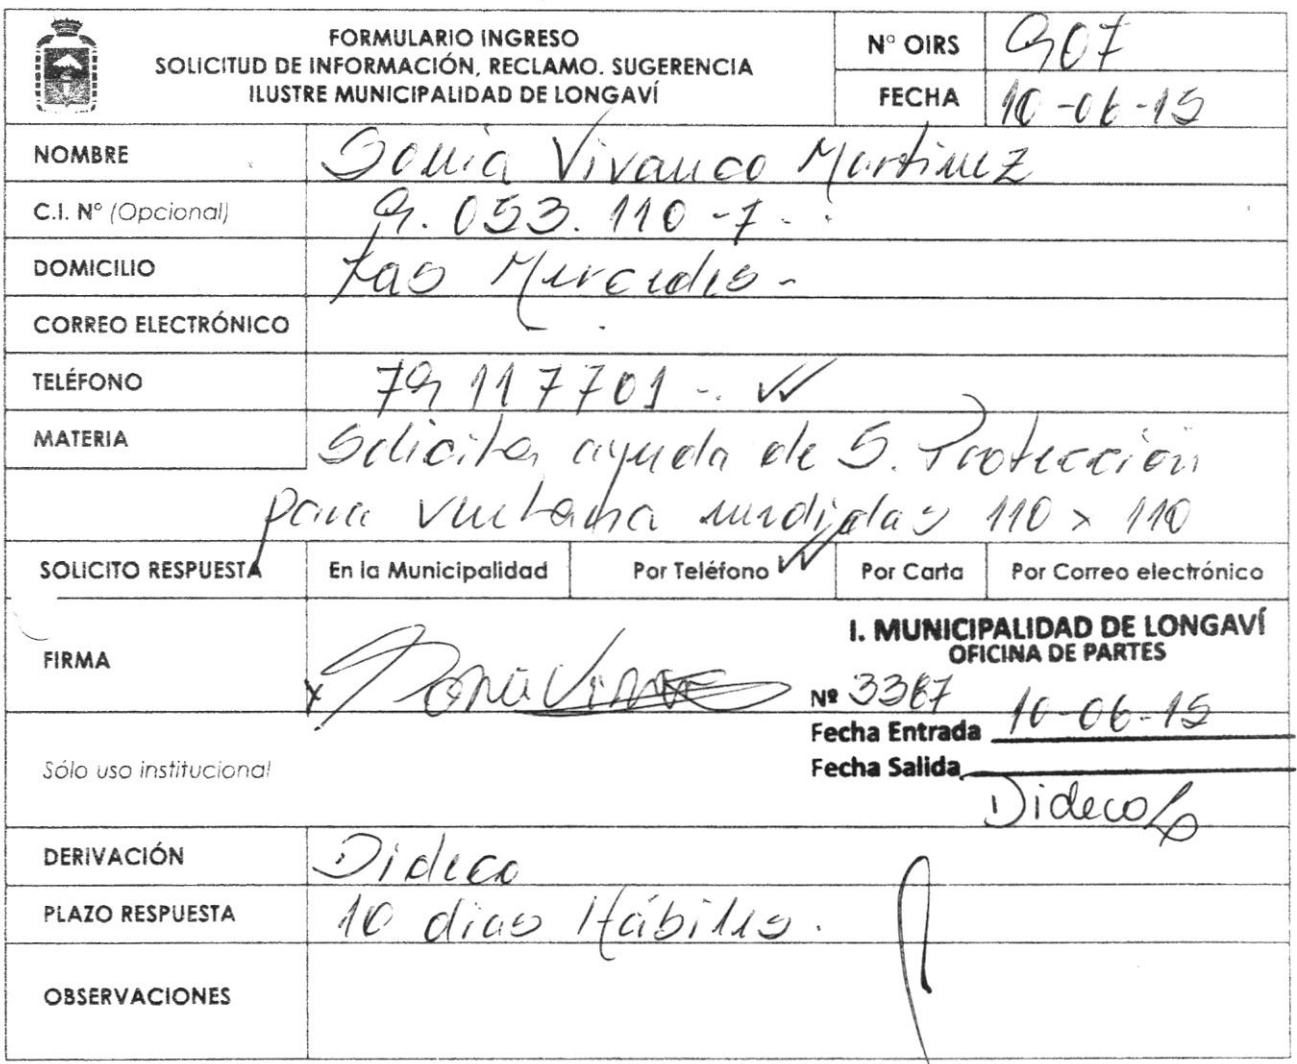 FORMULARIO INGRESO
SOLICITUD DE INFORMACIÓN, RECLAMO. SUGERENCIA
ILUSTRE MUNICIPALIDAD DE LONGAVÍ
N° OIRS 907
FECHA 10-06-15
NOMBRE Sonia Vivanco Martinez
C.I. N° (Opcional) 9.053.110-7-.
DOMICILIO Las Mercedes-
CORREO ELECTRÓNICO
TELÉFONO 79117701-.
MATERIA Solicita ayuda de 5. Protección
para ventana medidas 110 x 110
SOLICITO RESPUESTA En la Municipalidad Por Teléfono Por Carta Por Correo electrónico
I. MUNICIPALIDAD DE LONGAVÍ
OFICINA DE PARTES
FIRMA x Sonia
Nº 3387
Fecha Entrada 10-06-15
Sólo uso institucional
Fecha Salida
Dideco
DERIVACIÓN Dideco
PLAZO RESPUESTA 10 dias Hábiles.
OBSERVACIONES